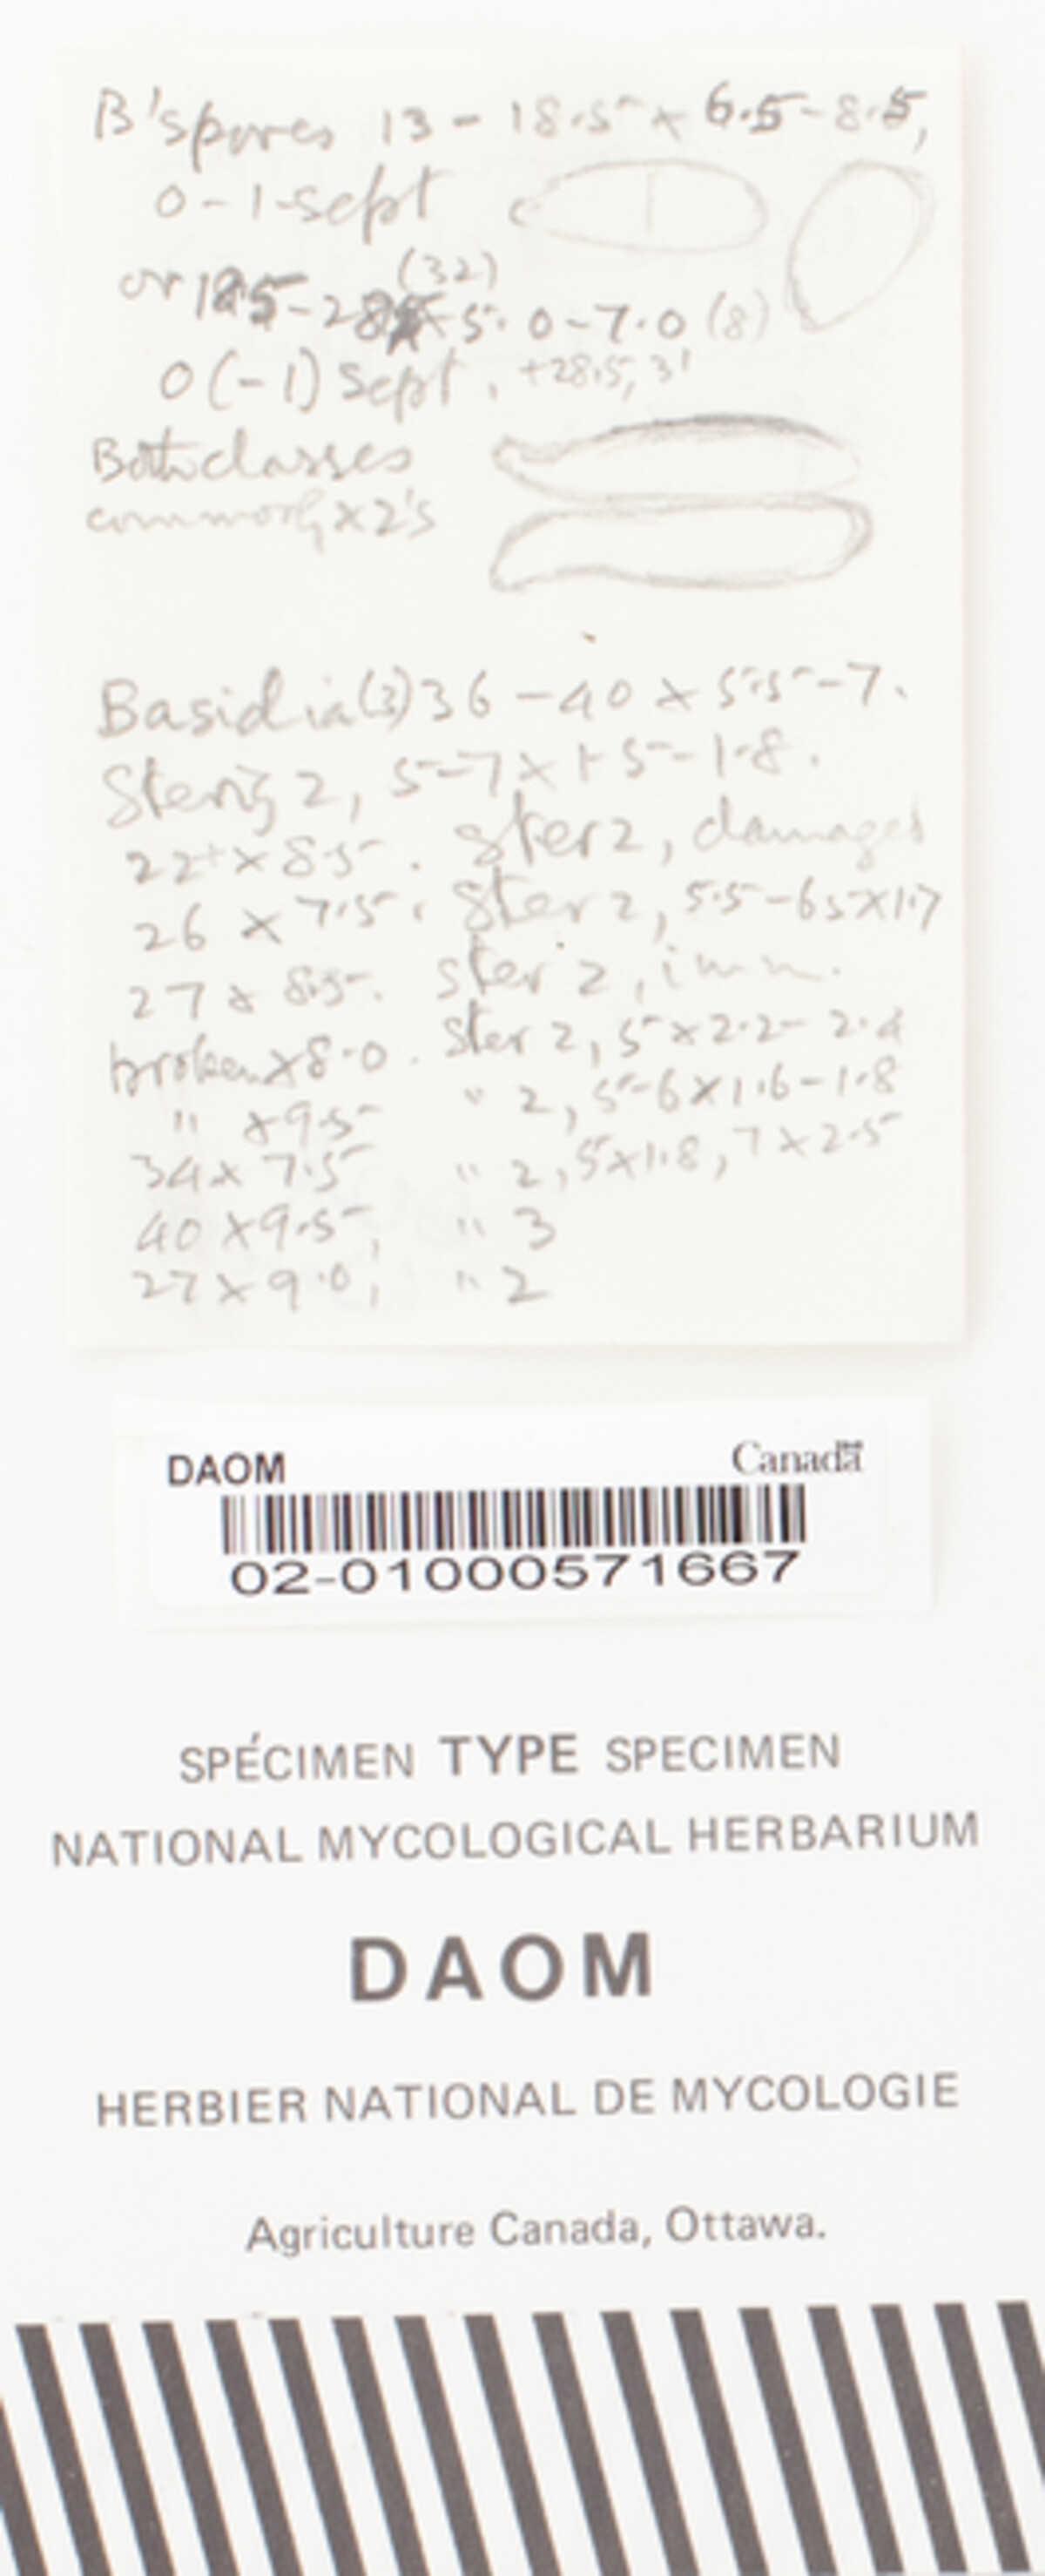 B'spores 13 - 18.5 × 6.5 - 8.5,
0 - 1-sept
(32)
or 5.0 - 7.0 (8)
0 (-1) sept. +28.5, 31
Both classes
commonly × 2's
Basidia (3) 36 - 40 × 5.5 - 7.
2, 5-7 × 1.5 - 1.8.
22+ × 8.5. ster 2, damaged
26 × 7.5. ster 2, 5.5-6.5×1.7
27 × 8.5. ster 2, imm.
broken × 8.0. ster 2, 5 × 2.2 - 2.4
" × 9.5 " 2, 5-6 × 1.6 - 1.8
34 × 7.5 " 2, 5×1.8, 7 × 2.5
40 × 9.5, " 3
27 × 9.0; " 2
DAOM Canada
02-01000571667
SPÉCIMEN TYPE SPECIMEN
NATIONAL MYCOLOGICAL HERBARIUM
DAOM
HERBIER NATIONAL DE MYCOLOGIE
Agriculture Canada, Ottawa.